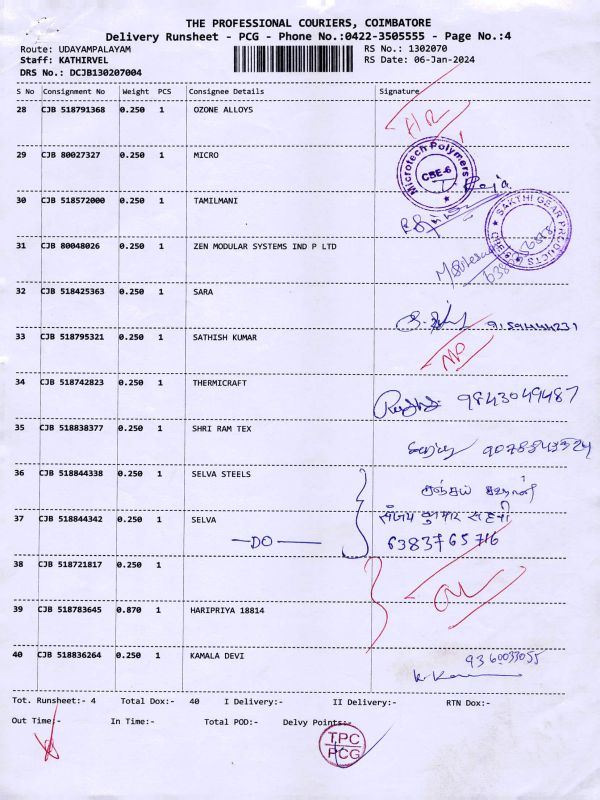 THE PROFESSIONAL COURIERS, COIMBATORE
Delivery Runsheet - PCG - Phone No.:0422-3505555 - Page No.:4
Route: UDAYAMPALAYAM RS No.: 1302070
Staff: KATHIRVEL RS Date: 06-Jan-2024
DRS No.: DCJB130207004
S No Consignment No Weight PCS Consignee Details Signature
28 CJB 518791368 0.250 1 OZONE ALLOYS
29 CJB 80027327 0.250 1 MICRO
Microtech Polymers
CBE-6
Raja
30 CJB 518572000 0.250 1 TAMILMANI
SAKTHI GEAR PRODUCTS
31 CJB 80048026 0.250 1 ZEN MODULAR SYSTEMS IND P LTD
32 CJB 518425363 0.250 1 SARA
33 CJB 518795321 0.250 1 SATHISH KUMAR
34 CJB 518742823 0.250 1 THERMICRAFT
9843049487
35 CJB 518838377 0.250 1 SHRI RAM TEX
36 CJB 518844338 0.250 1 SELVA STEELS
37 CJB 518844342 0.250 1 SELVA
संजय कुमार सहनी
DO 6383765716
38 CJB 518721817 0.250 1
39 CJB 518783645 0.870 1 HARIPRIYA 18814
40 CJB 518836264 0.250 1 KAMALA DEVI
9360033055
Tot. Runsheet:- 4 Total Dox:- 40 I Delivery:- II Delivery:- RTN Dox:-
Out Time:- In Time:- Total POD:- Delvy Points:-
TPC
PCG